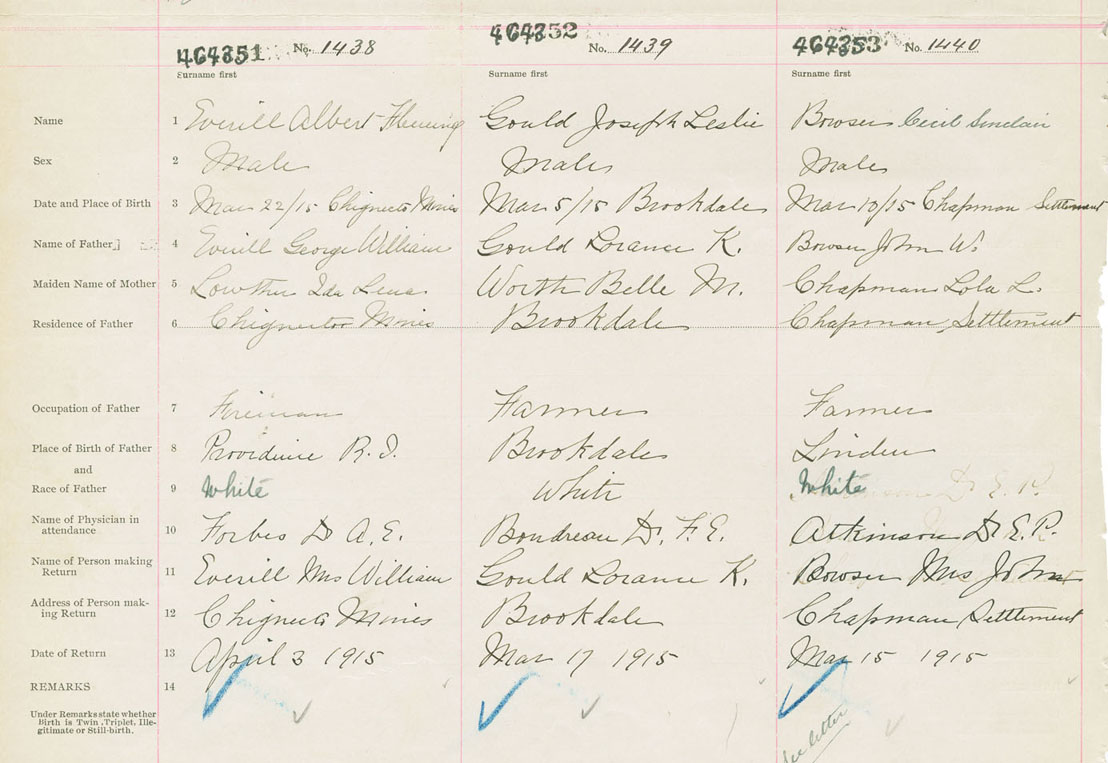 464351 No. 1438 464352 No. 1439 464353 No. 1440
Surname first Surname first Surname first
Name 1 Everill Albert Fleming Gould Joseph Leslie Bowser Cecil Sinclair
Sex 2 Male Male Male
Date and Place of Birth 3 Mar 22/15 Chignecto Mines Mar 5/15 Brookdale Mar 10/15 Chapman Settlement
Name of Father 4 Everill George William Gould Lorance K. Bowser John W.
Maiden Name of Mother 5 Lowther Ida Lena Worth Belle M. Chapman Lola L.
Residence of Father 6 Chignecto Mines Brookdale Chapman Settlement
Occupation of Father 7 Fireman Farmer Farmer
Place of Birth of Father 8 Providence R.I. Brookdale Linden
and
Race of Father 9 White White White
Name of Physician in
attendance 10 Forbes D A.E. Boudreau Dr. F.E. Atkinson Dr. E.P.
Name of Person making
Return 11 Everill Mrs William Gould Lorance K. Bowser Mrs John
Address of Person mak-
ing Return 12 Chignecto Mines Brookdale Chapman Settlement
Date of Return 13 April 3 1915 Mar 17 1915 Mar 15 1915
REMARKS 14
Under Remarks state whether
Birth is Twin, Triplet, Ille-
gitimate or Still-birth.
see letter